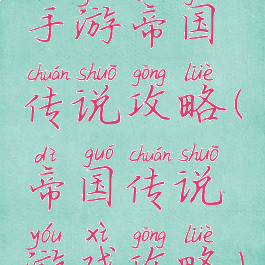 手游帝国
chuán shuō gōng lüè
传说攻略(
dì guó chuán shuō
帝国传说
yóu xì gōng lüè
游戏攻略)